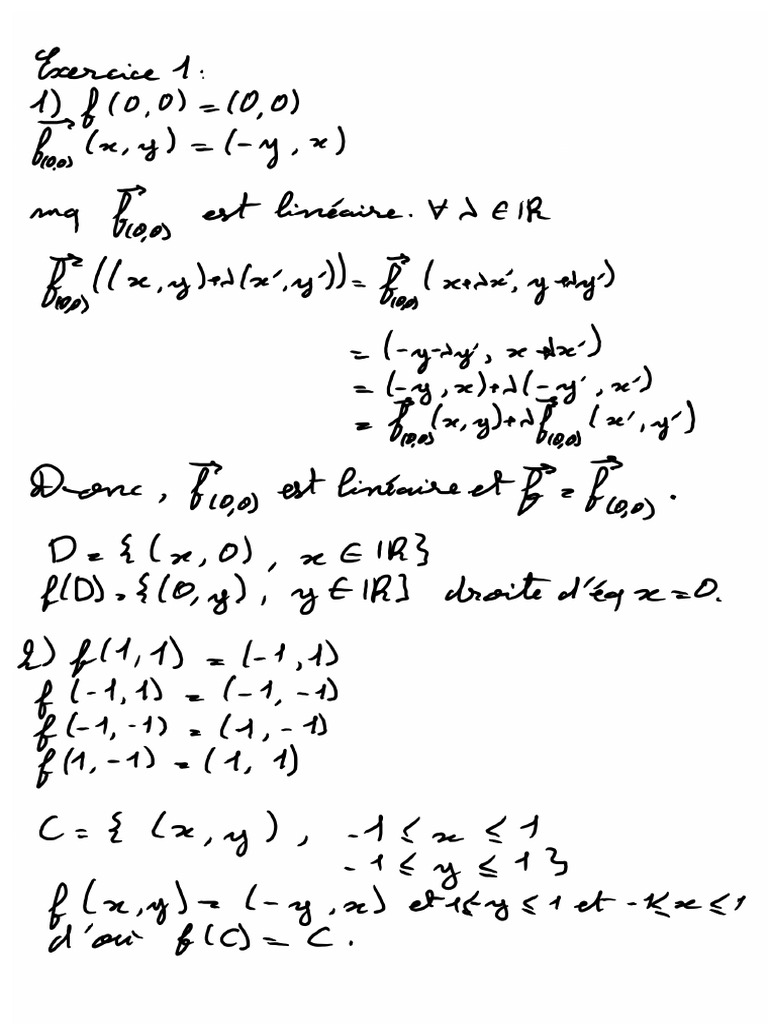 Exercice 1:
1) f(0,0) = (0,0)
f⃗(0,0) (x, y) = (-y, x)
mq f⃗(0,0) est linéaire. ∀ λ ∈ ℝ
f⃗(0,0) ((x, y)+λ(x', y')) = f⃗(0,0) (x+λx', y+λy')
= (-y-λy', x+λx')
= (-y, x)+λ(-y', x')
= f⃗(0,0)(x, y)+λf⃗(0,0) (x', y')
Donc, f⃗(0,0) est linéaire et f⃗ = f⃗(0,0).
D = {(x, 0), x ∈ ℝ}
f(D) = {(0, y), y ∈ ℝ} droite d'éq x = 0.
2) f(1, 1) = (-1, 1)
f(-1, 1) = (-1, -1)
f(-1, -1) = (1, -1)
f(1, -1) = (1, 1)
C = { (x, y), -1 ≤ x ≤ 1
-1 ≤ y ≤ 1 }
f(x, y) = (-y, x) et 1≤ y ≤ 1 et -1≤ x ≤ 1
d'où f(C) = C.